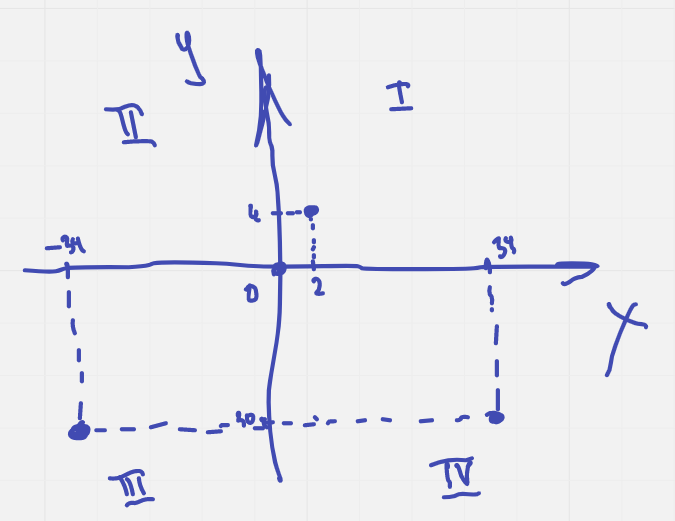 y
II
I
4
-34
34
0
2
X
III
IV